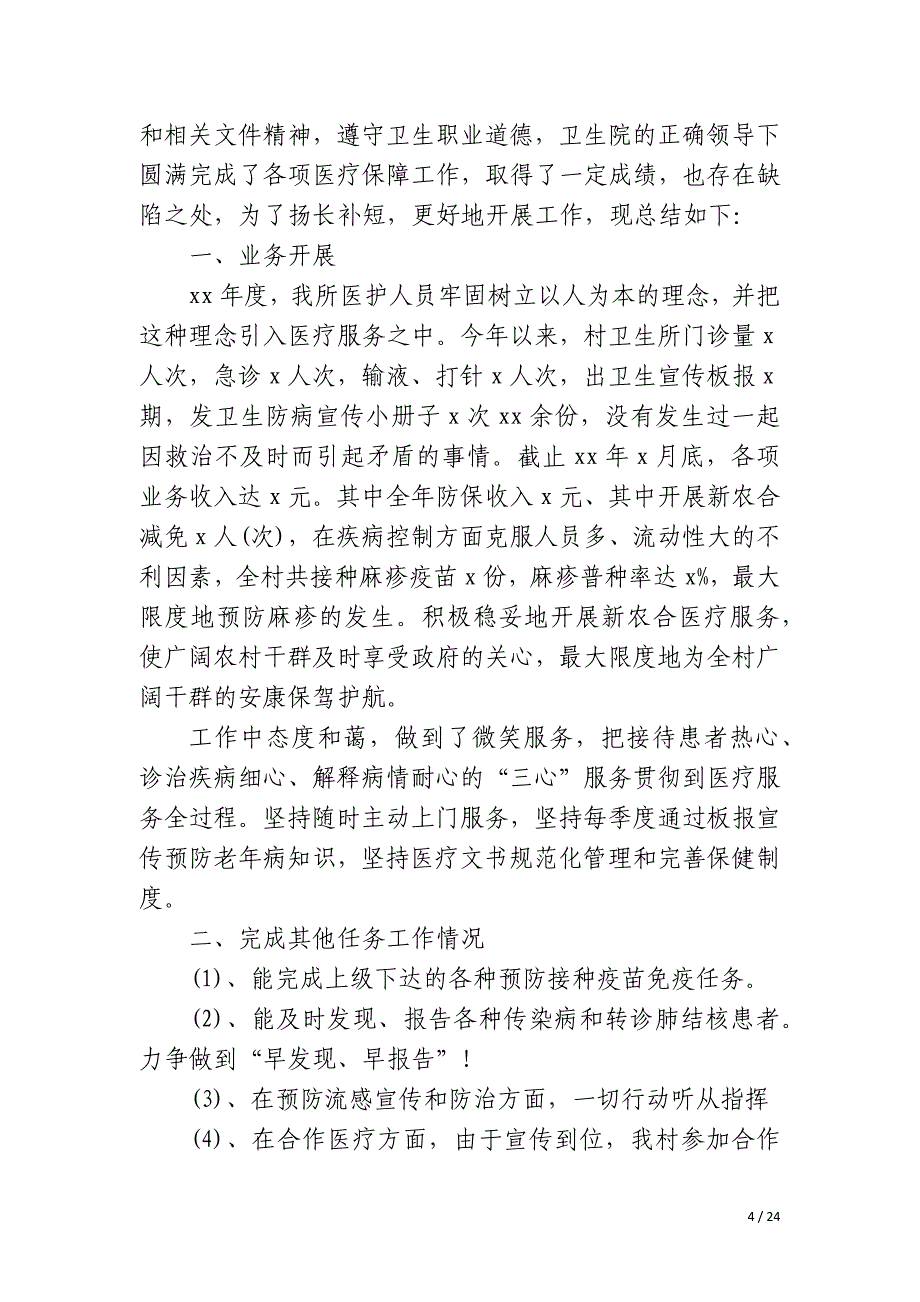 和相关文件精神，遵守卫生职业道德，卫生院的正确领导下
圆满完成了各项医疗保障工作，取得了一定成绩，也存在缺
陷之处，为了扬长补短，更好地开展工作，现总结如下：
一、业务开展
xx 年度，我所医护人员牢固树立以人为本的理念，并把
这种理念引入医疗服务之中。今年以来，村卫生所门诊量 x
人次，急诊 x 人次，输液、打针 x 人次，出卫生宣传板报 x
期，发卫生防病宣传小册子 x 次 xx 余份，没有发生过一起
因救治不及时而引起矛盾的事情。截止 xx 年 x 月底，各项
业务收入达 x 元。其中全年防保收入 x 元、其中开展新农合
减免 x 人(次)，在疾病控制方面克服人员多、流动性大的不
利因素，全村共接种麻疹疫苗 x 份，麻疹普种率达 x%，最大
限度地预防麻疹的发生。积极稳妥地开展新农合医疗服务，
使广阔农村干群及时享受政府的关心，最大限度地为全村广
阔干群的安康保驾护航。
工作中态度和蔼，做到了微笑服务，把接待患者热心、
诊治疾病细心、解释病情耐心的“三心”服务贯彻到医疗服
务全过程。坚持随时主动上门服务，坚持每季度通过板报宣
传预防老年病知识，坚持医疗文书规范化管理和完善保健制
度。
二、完成其他任务工作情况
(1)、能完成上级下达的各种预防接种疫苗免疫任务。
(2)、能及时发现、报告各种传染病和转诊肺结核患者。
力争做到“早发现、早报告”！
(3)、在预防流感宣传和防治方面，一切行动听从指挥
(4)、在合作医疗方面，由于宣传到位，我村参加合作
4 / 24